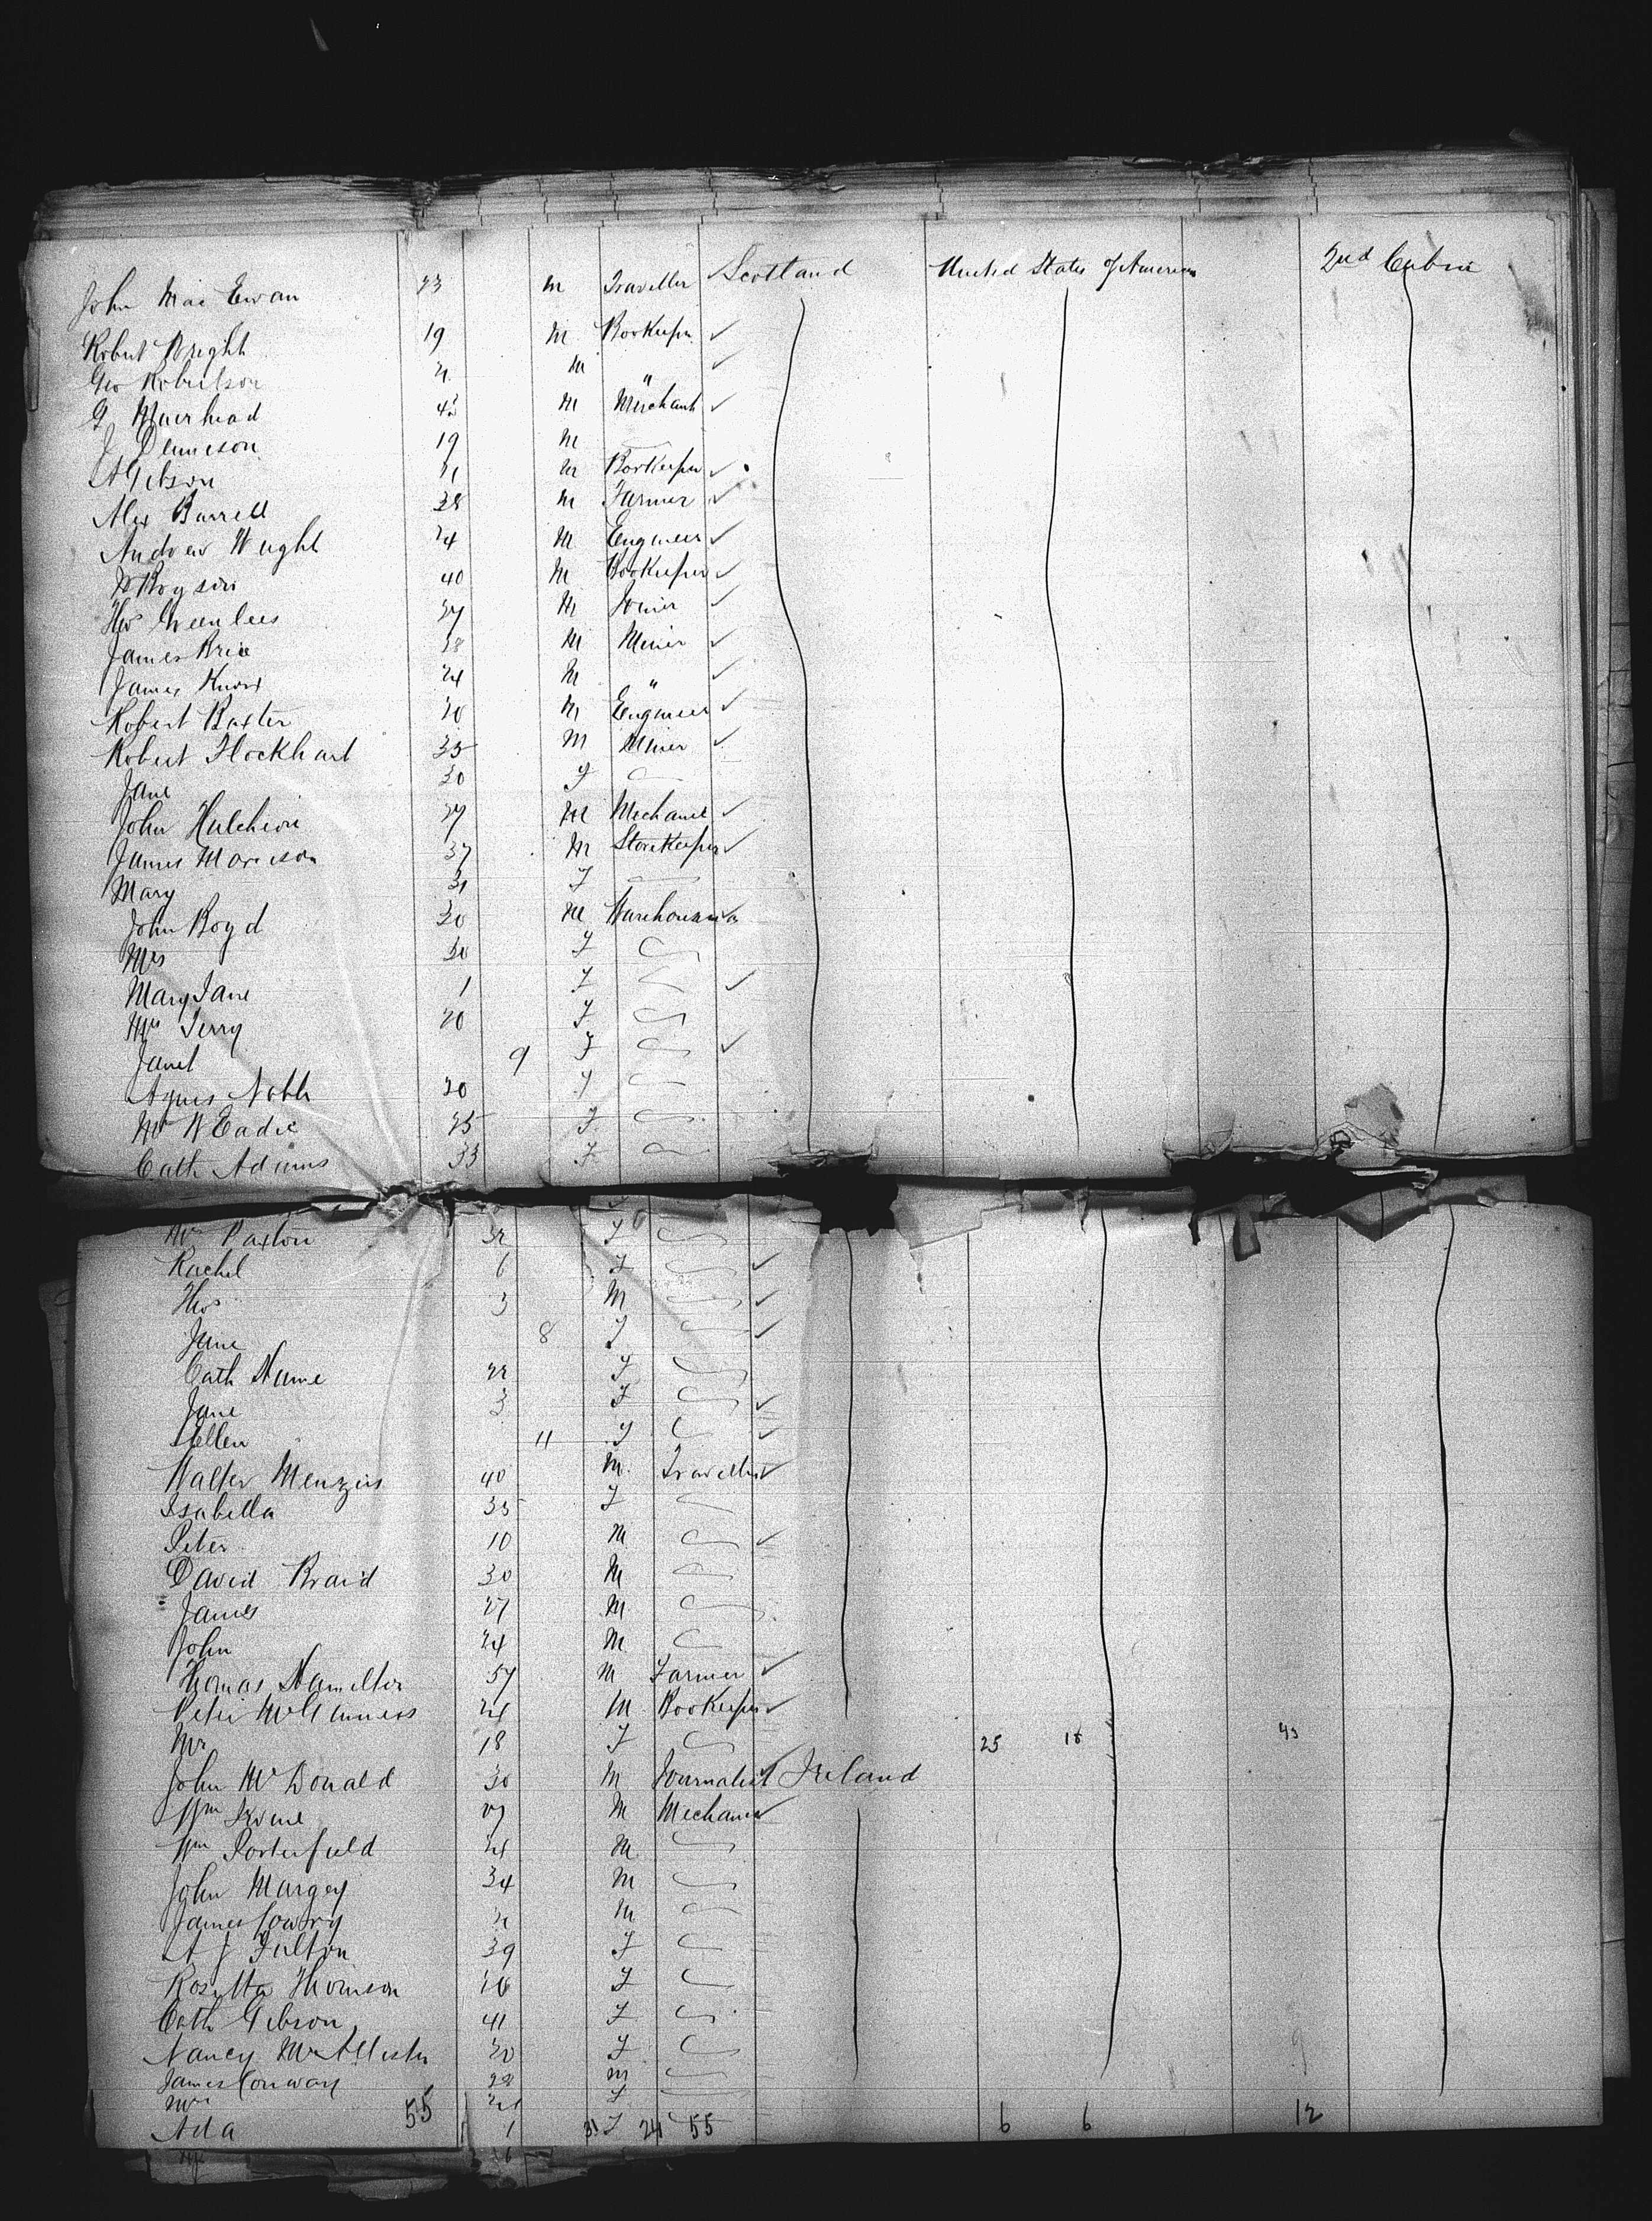 John Mac Ewan 23 M Traveller Scotland United States of America 2nd Cabin
Robert Wright 19 M Bookeeper ✓
Geo Robertson 21 M " ✓
G Muirhead 43 M Merchant ✓
J Dennison 19 M
A Gibson 21 M Bookeeper ✓
Alex Barrell 38 M Farmer ✓
Andrew Wright 24 M Engineer ✓
Boyson 40 M Bookeeper ✓
Thos Greenlees 27 M Joiner ✓
James Brice 28 M Miner ✓
James Knox 24 M " ✓
Robert Baxter 20 M Engineer ✓
Robert Flockhart 35 M Miner ✓
Jane 30 F
John Hutchison 27 M Mechanic ✓
James Morrison 37 M Storekeeper ✓
Mary 31 F
John Boyd 30 M Warehouseman
Mrs 30 F
Mary Jane 1 F ✓
Mrs Terry 20 F
Janet 9 F ✓
Agnes Noble 20 F
W Eadie 25 F
Cath Adams 33 F
Mrs Paxton 32 F
Rachel 6 F ✓
Thos 3 M ✓
Jane 8 F ✓
Cath Hume 22 F
Jane 3 F ✓
Hellen 11 F ✓
Walter Menzies 40 M Traveller ✓
Isabella 35 F
Peter 10 M ✓
David Braid 30 M
James 27 M
John 24 M
Thomas Hamilton 57 M Farmer ✓
Peter McGinness 24 M Bookeeper ✓
Mrs 18 F 25 18 43
John McDonald 30 M Journalist ✓ Ireland
Wm Irvine 27 M Mechanic ✓
Wm Porterfield 24 M
John Margey 34 M
James Lowry 21 M
A J Fulton 39 F
Rosetta Thomson 26 F
Cath Gibson 41 F
Nancy McAllister 20 F
James Conway 28 M
Mrs 24 F
Ada 55 1 31 F 24 55 6 6 12